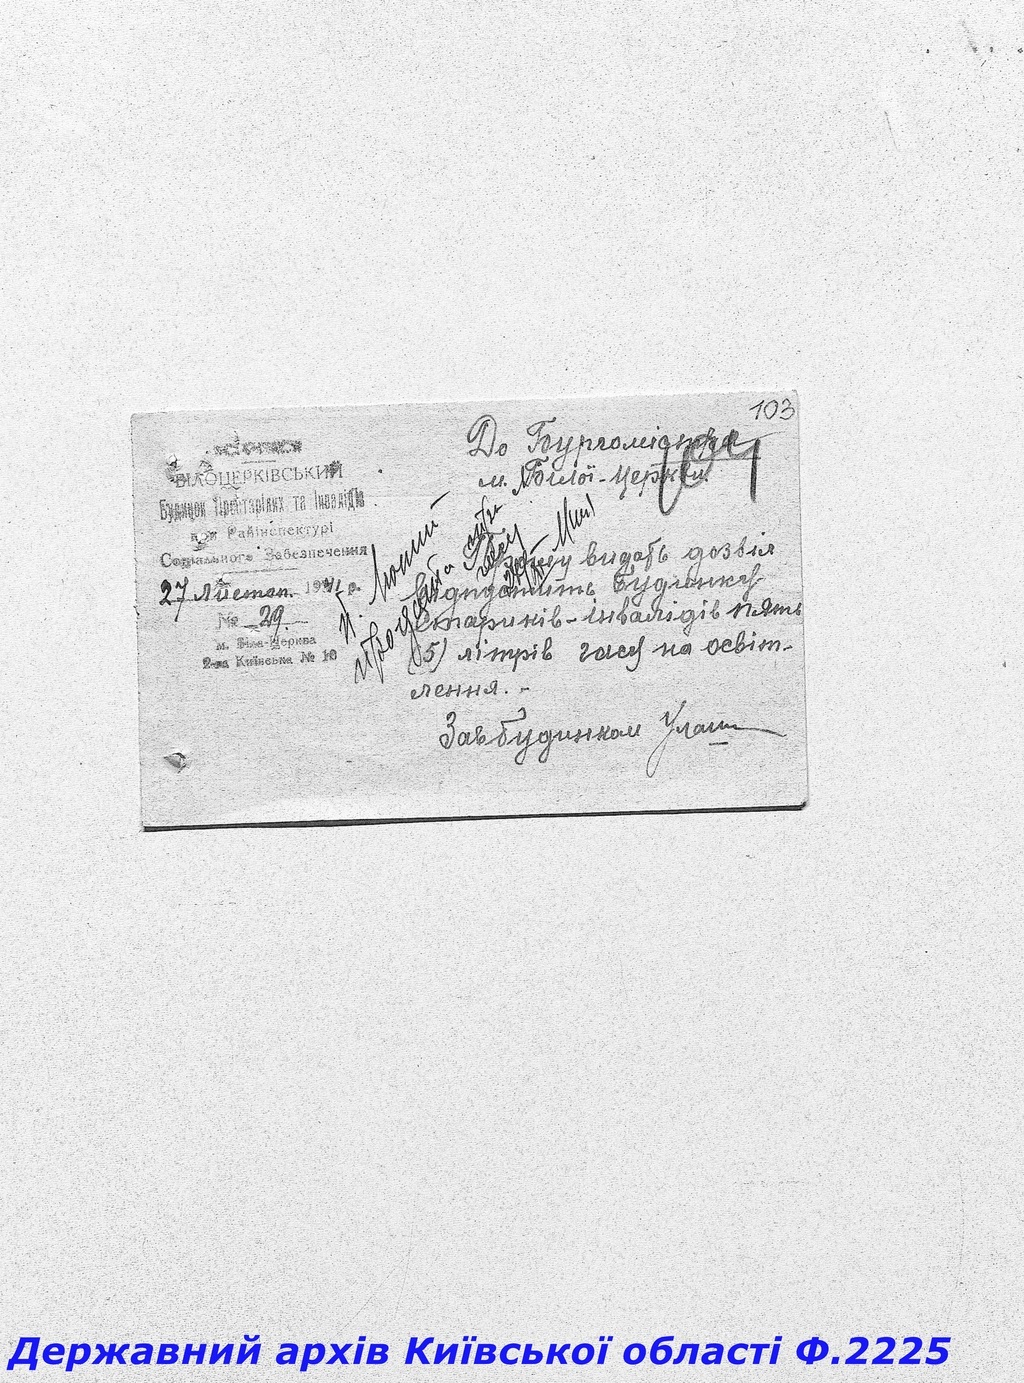 103
104
БІЛОЦЕРКІВСЬКИЙ
Будинок Престарілих та Інвалідів
при Райінспектурі
Соціального Забезпечення
27 Листоп. 1941 р.
№ 29.
м. Біла-Церква
2-га Київська № 10
До Бургомістра
м. Білої-Церкви.
видать дозвіл
відпустить Будинку
Стариків-інвалідів пять
(5) літрів гасу на освіт-
лення. -
Зав Будинком
Державний архів Київської області Ф.2225